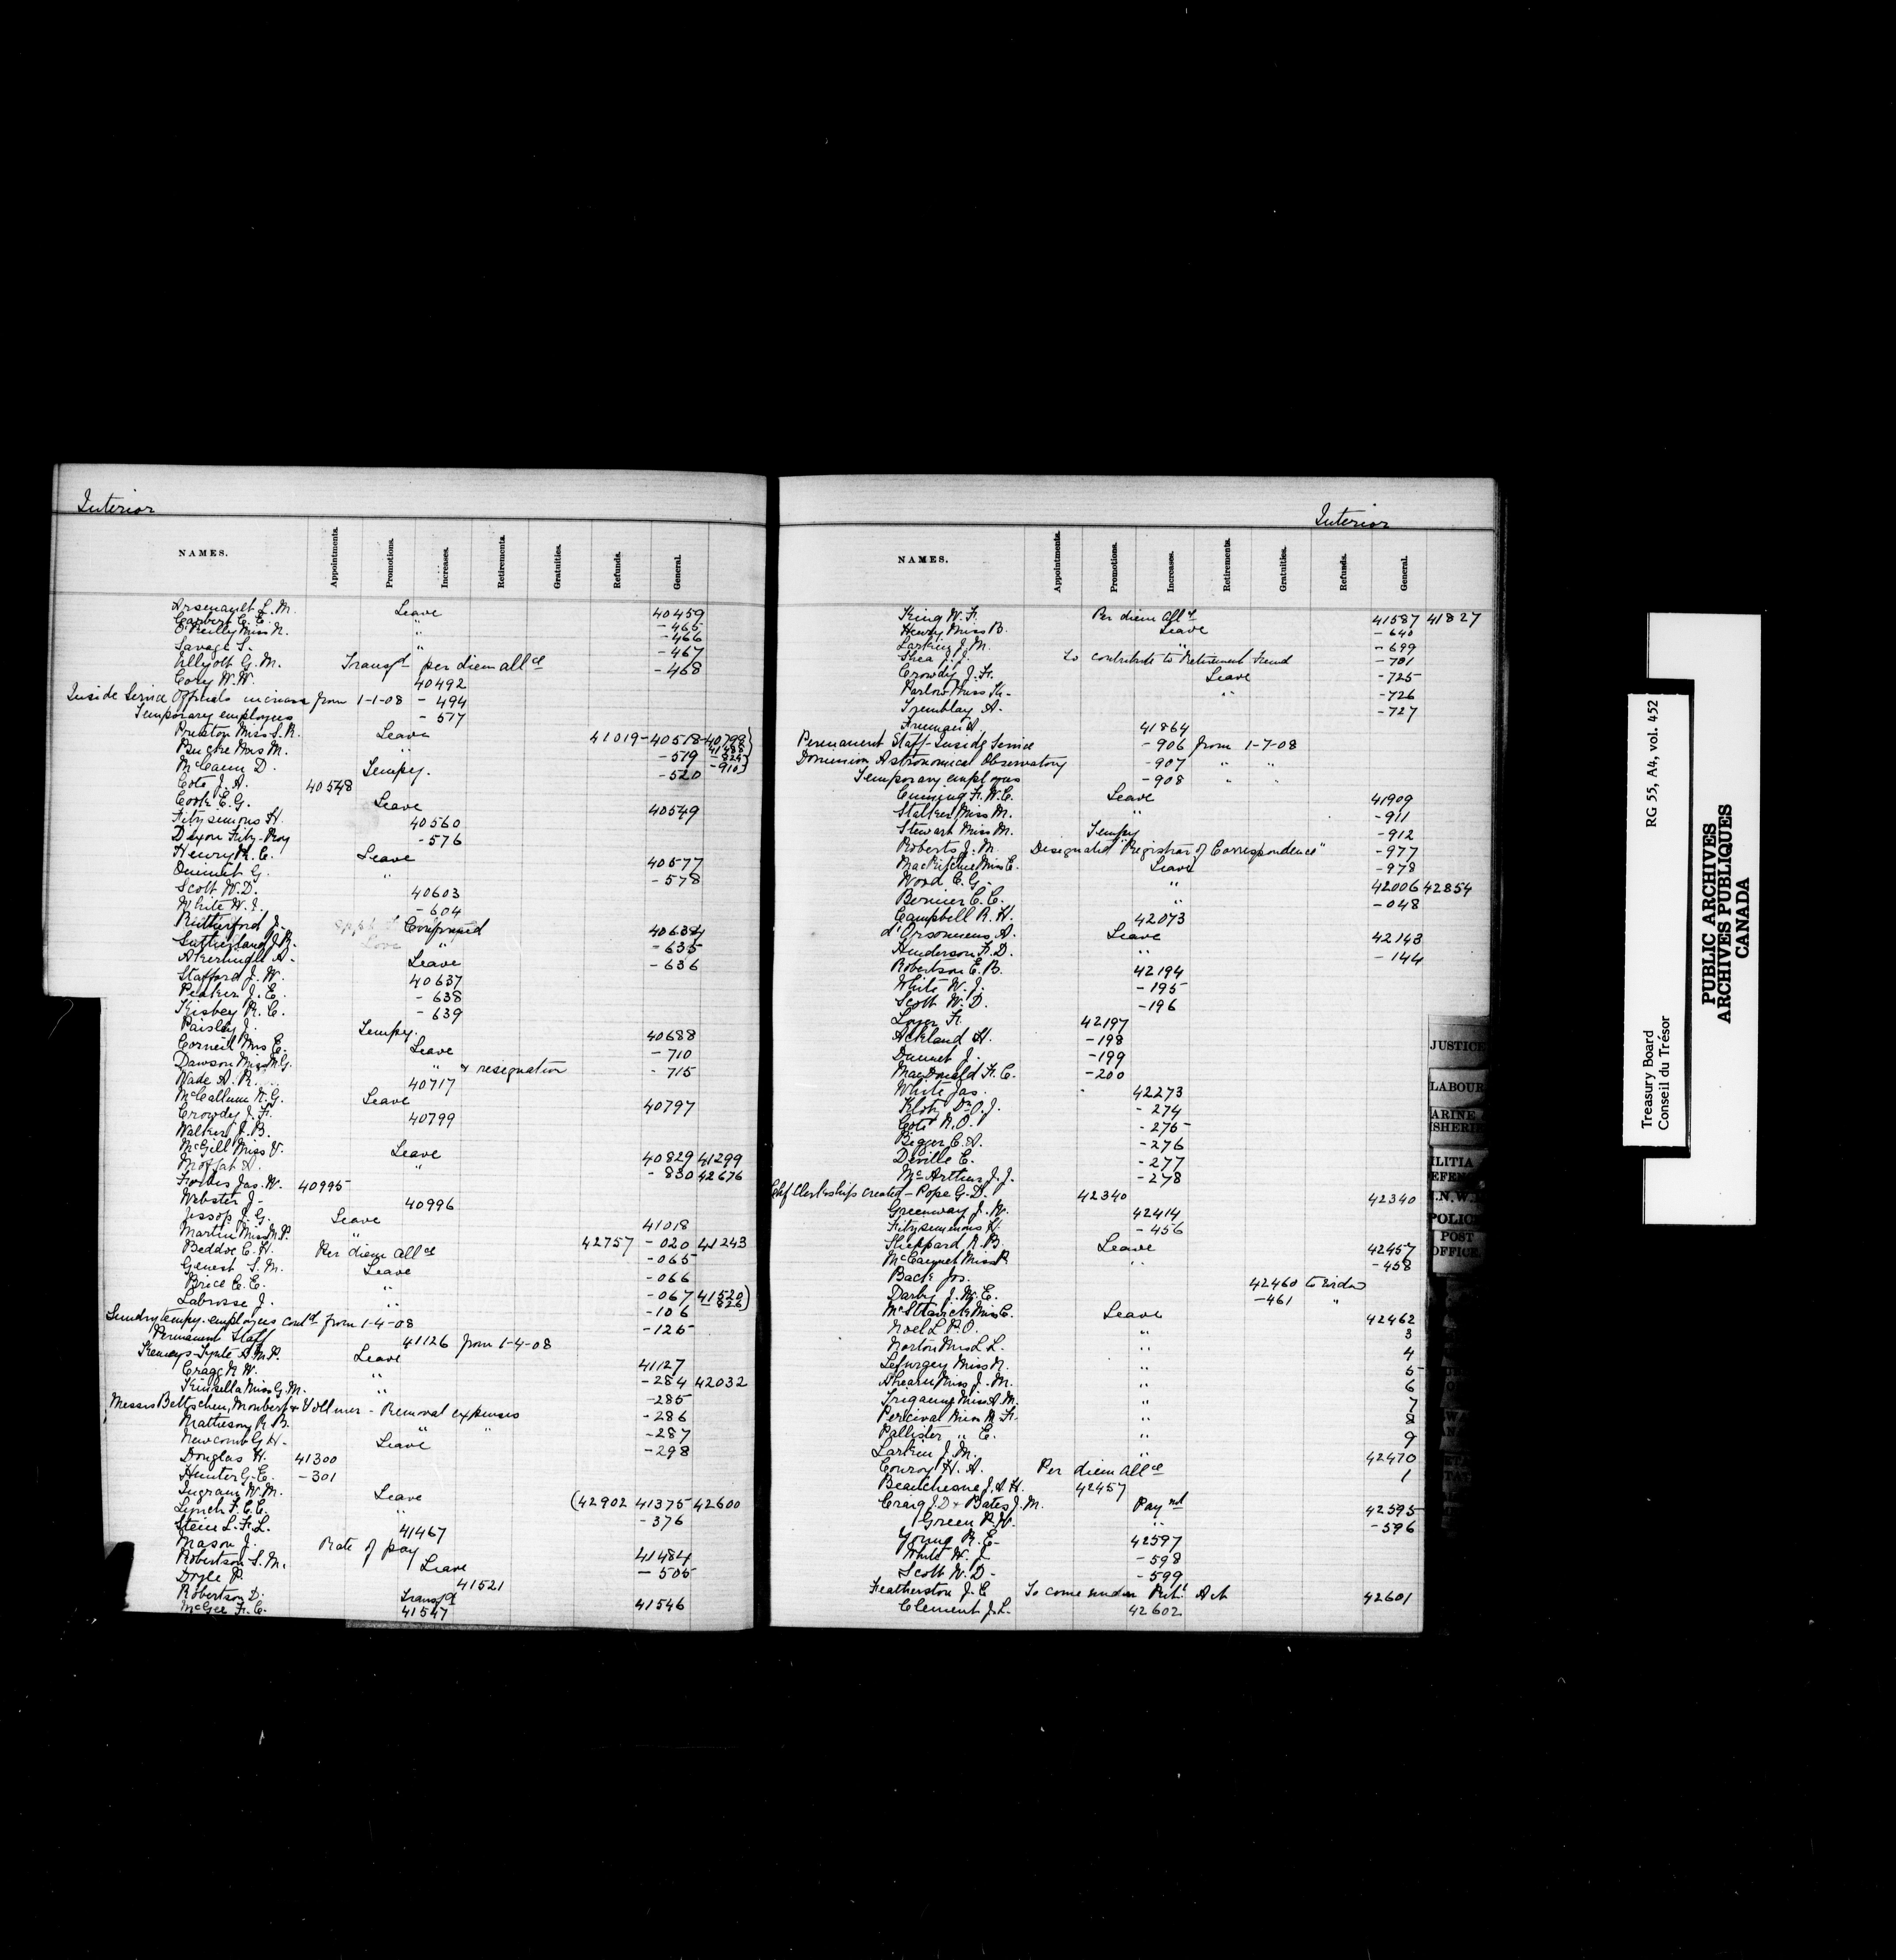 Interior
NAMES. Appointments. Promotions. Increases. Retirements. Gratuities. Refunds. General.
Arsenault L. M. Leave 40459
Carbery C. E. " -465
O'Reilly Miss N. " -466
Savage S. " -467
Ellyott G. M. Transfd per diem allce -468
Cory W. W. 40492
Inside Service Officials increase from 1-1-08 - 494
Temporary employees - 517
Preston Miss S. R. Leave 41019-40518-40798
Burke Miss M. " -519
-910
McCann D. Tempy. -520
Coté J. A. 40548
Cook E. G. Leave 40549
Fitzsimons H. 40560
Dixon Fitz-Roy -576
Henry R. C. Leave 40577
Ouimet G. " -578
Scott W. D. 40603
White W. J. -604
Rutherford J. Confirmed 40634
Sutherland J. R. " -635
A. Leave -636
Stafford J. W. 40637
Peaker J. E. - 638
Kisbey R. C. - 639
Paisley J. Tempy. 40688
Corneil Mrs E. Leave - 710
Dawson Miss M G. " & resignation - 715
Wade A. R. 40717
McCallum N. G. Leave 40797
Crowdy J. F. 40799
Walker J. B.
McGill Miss V. Leave 40829 41299
Moffat A. " - 830 42676
Forbes Jas. W. 40995
Webster J- 40996
Jessop J. G. Leave 41018
Martin Miss M P. " 42757 - 020 41243
Beddoe C. H. Per diem allce -065
Genest S. M. Leave -066
Brice C. E. " -067 41520)
Labrosse J. " -106
Sundry tempy. employees contd from 1-4-08 -125
Permanent Staff 41126 from 1-4-08
Kemeys-Tynte A. M. P. Leave 41127
Cragg R W. " -284 42032
Kinsella Miss G. M. " -285
Messrs Bettschen, Monbert & Vollmer - Removal expenses -286
Matheson R. B. " " -287
Newcomb G H. Leave -298
Douglas H. 41300
Hunter G. C. -301
Ingram W. M. Leave (42902 41375 42600
Lynch F. C. C. " -376
Stein L. F. L. 41467
Mason J. Rate of pay 41484
Robertson S. M. Leave - 505
Doyle P. 41521
Robertson D. Transfd 41546
McGee F. C. 41547
Interior
NAMES. Appointments. Promotions. Increases. Retirements. Gratuities. Refunds. General.
King W. F. Per diem allce 41587 41827
Henry Miss B. Leave - 640
Larkin J. M. " - 699
Shea J. J. to contribute to Retirement Fund -701
Crowdy J. F. Leave -725
Parlow Miss K- " -726
Tremblay A. -727
Freeman A. 41864
Permanent Staff-Inside Service -906 from 1-7-08
Dominion Astronomical Observatory -907 " "
Temporary employees -908 " "
Cuming F. W. C. Leave 41909
Stalker Miss M. " -911
Stewart Miss M. Tempy -912
Roberts J. M. Designated "Registrar of Correspondence" -977
MacRitchie Miss E. Leave -978
Wood C. G. " 42006 42854
Bernier C. C. " -048
Campbell R. H. 42073
d'Orsonnens A. Leave 42143
Henderson F. D. " -144
Robertson E. B. 42194
White W. J. -195
Scott W. D. -196
Loyer F. 42197
Ackland H. -198
Dunnet J. -199
MacDonald F. C. -200
White Jas. 42273
Klotz Dr O. J. - 274
Coté N. O. -275
Bigger C. A. -276
Deville E. -277
McArthur J. J. -278
Chf Clerkships created - Pope G. D. 42340 42340
Greenway J. W. 42414
Fitzsimmons H. -456
Sheppard N. B. Leave 42457
Miss R " -458
Back Jos. 42460 to widow
Darby J. W. E. -461 "
Miss C. Leave 42462
Noel L. P. O. " 3
Norton Mrs L L. " 4
Lefurgey Miss N. " 5
Ahearn Miss J. M. " 6
Miss A. M. " 7
Percival Miss M. F. " 8
Pallister " E. " 9
Larkin J. M. " 42470
Conroy H. A. Per diem allce 1
Beauchesne J. A. H. 42457
Craig J. D & Bates J. M. Paynt 42595
Green R. W. " -596
Young R. E- 42597
White W. J. -598
Scott W. D- -599
Featherston J. C To come under Ret. Act 42601
Clement J. L. 42602
JUSTICE
LABOUR
ARINE
ISHERIE
ILITIA
EFEN
POLIC
POST
OFFICE
Treasury Board RG 55, A4, vol. 452
Conseil du Trésor
PUBLIC ARCHIVES
ARCHIVES PUBLIQUES
CANADA